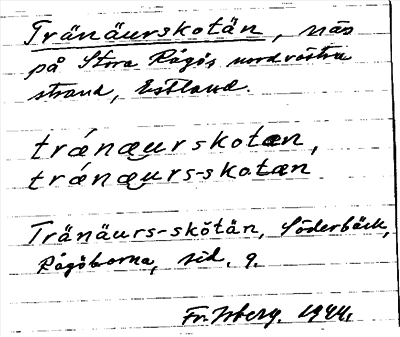 Tränäurskotän, näs
på Stora Rågös nordvästra
strand, Estland.
tránæurskotæn,
tránæurs-skotæn
Tränäurs-skötän, Söderbäck,
Rågöborna, sid. 9.
Fr. Isberg. 1944.